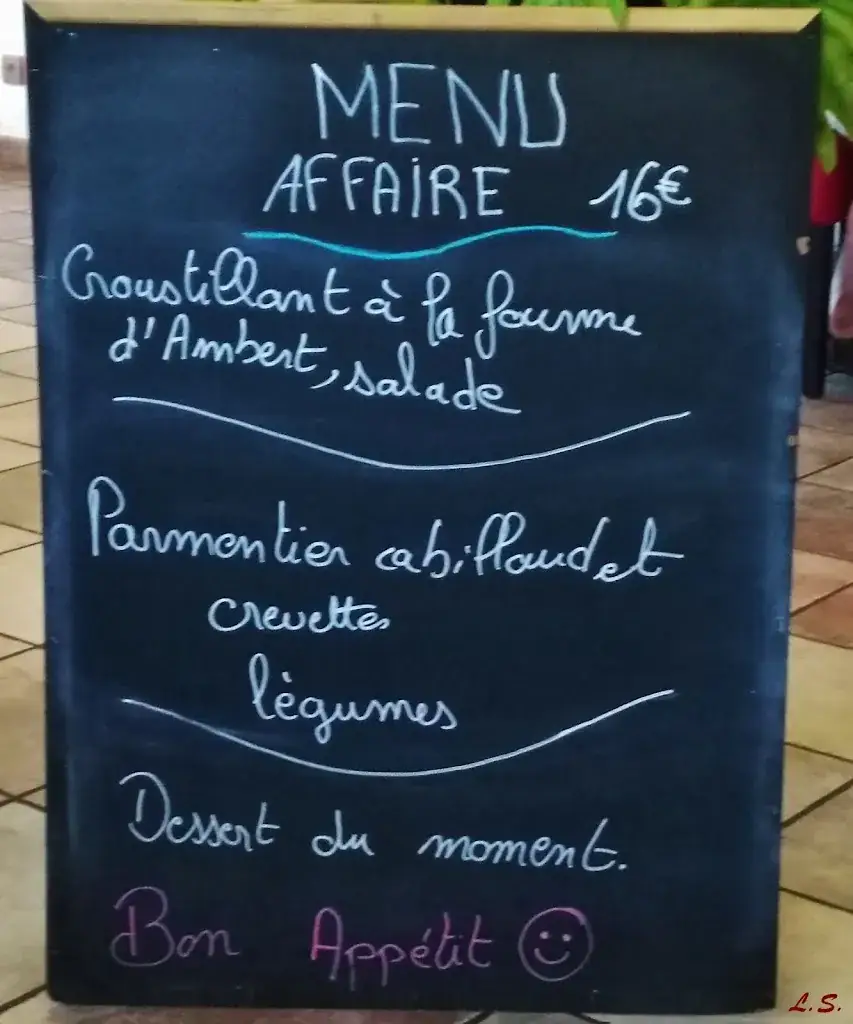 MENU
AFFAIRE 16€
Croustillant à la fourme
d'Ambert, salade
Parmentier cabillaud et
crevettes
légumes
Dessert du moment.
Bon Appétit ☺
L.S.